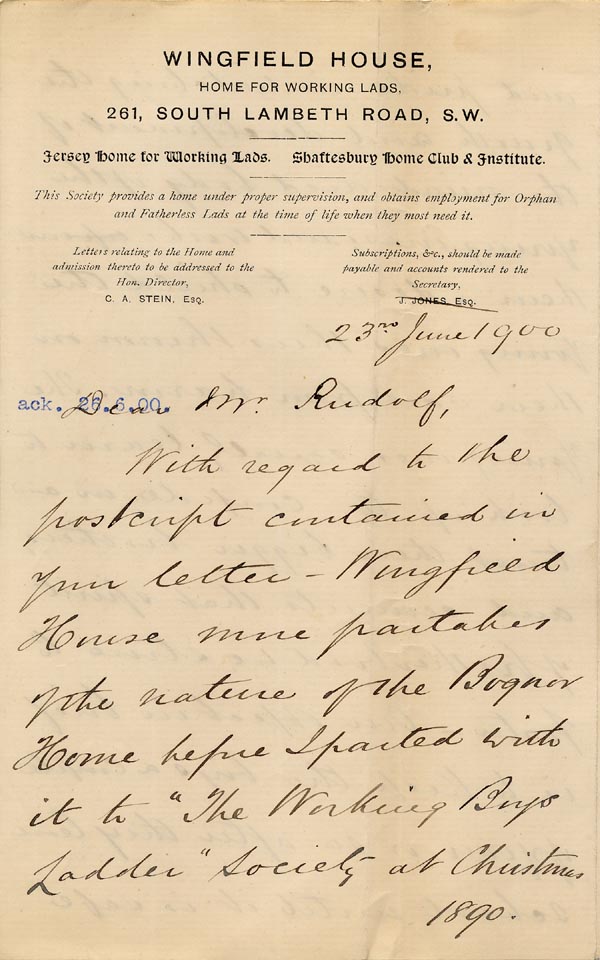 WINGFIELD HOUSE,
HOME FOR WORKING LADS,
261, SOUTH LAMBETH ROAD, S.W.
Jersey Home for Working Lads. Shaftesbury Home Club & Institute.
This Society provides a home under proper supervision, and obtains employment for Orphan
and Fatherless Lads at the time of life when they most need it.
Letters relating to the Home and
admission thereto to be addressed to the
Hon. Director,
C. A. STEIN, ESQ.
Subscriptions, &c., should be made
payable and accounts rendered to the
Secretary,
J. JONES, ESQ.
23rd June 1900
ack. 26.6.00.
Dear Mr. Rudolf,
With regard to the
postcript contained in
your letter – Wingfield
House more partakes
of the nature of the Bognor
Home before I parted with
it to "The Working Boys
Ladder" Society at Christmas
1890.